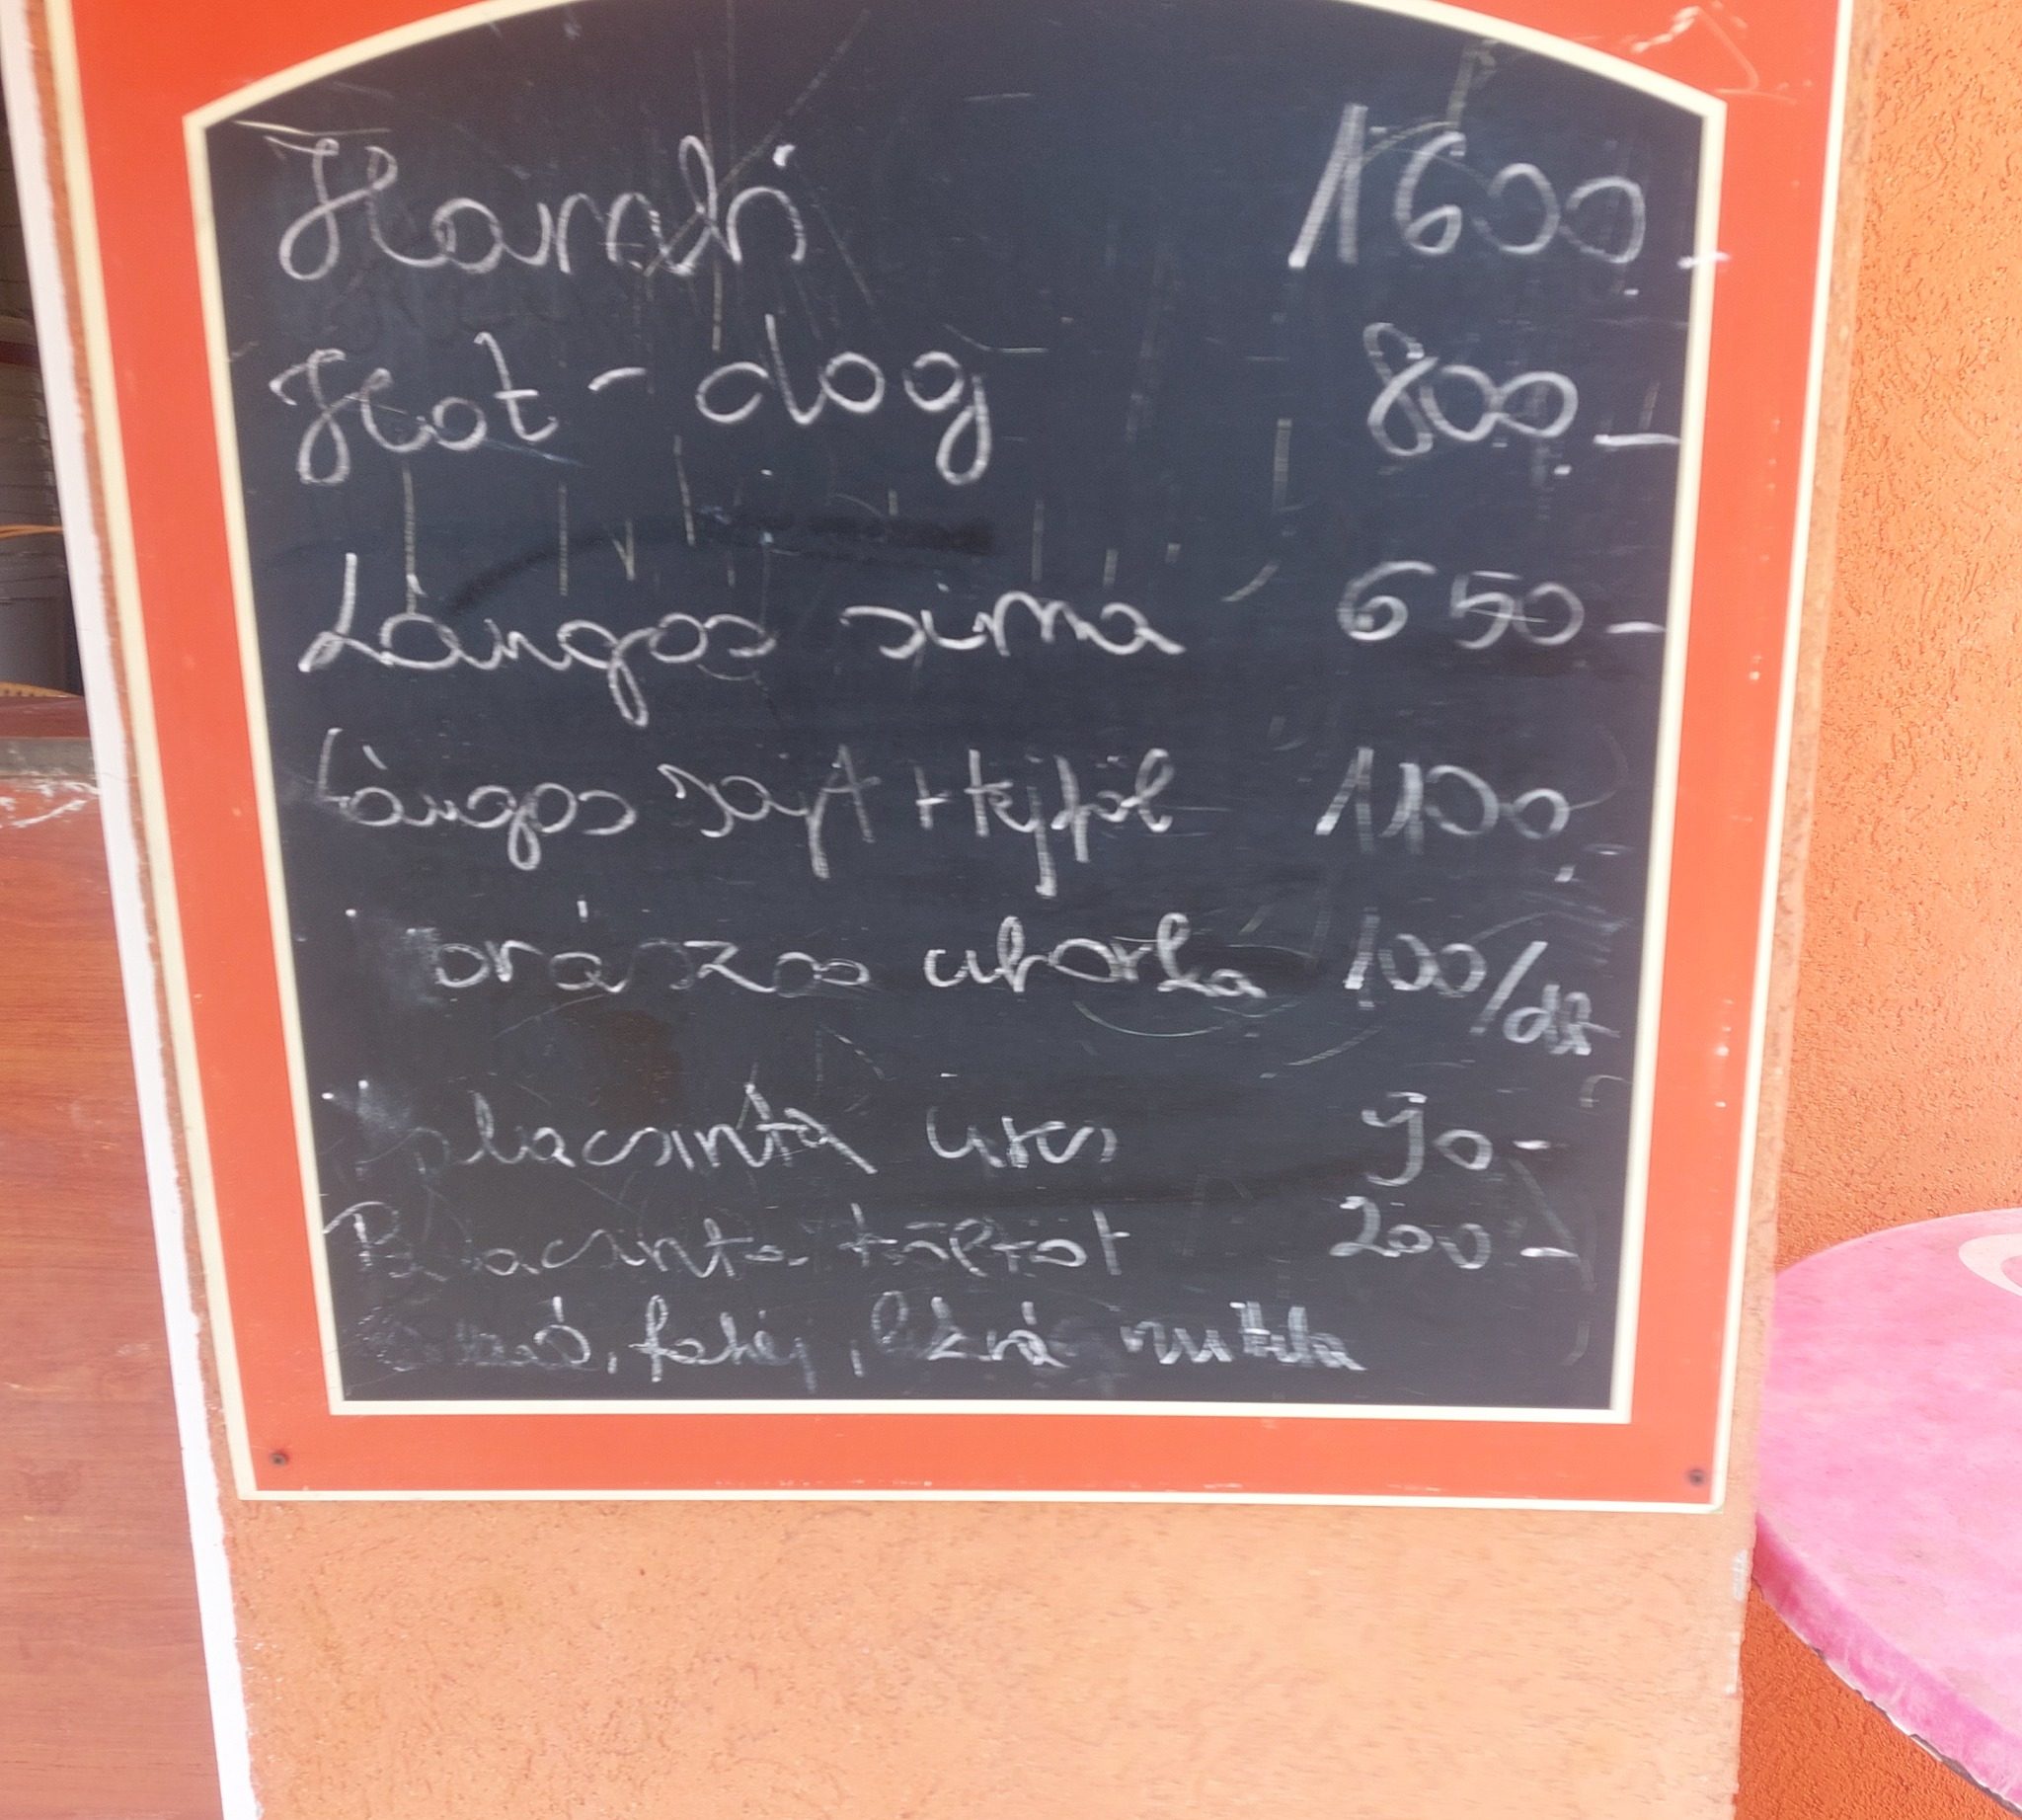 Hambi 1600.-
Hot-dog 800.-
Lángos sima 650-
Lángos sajt + tejföl 1100.
orászos uborka 100/db
alacsinta üres 90-
Palacsinta töltött 200-
fahéj, nutella